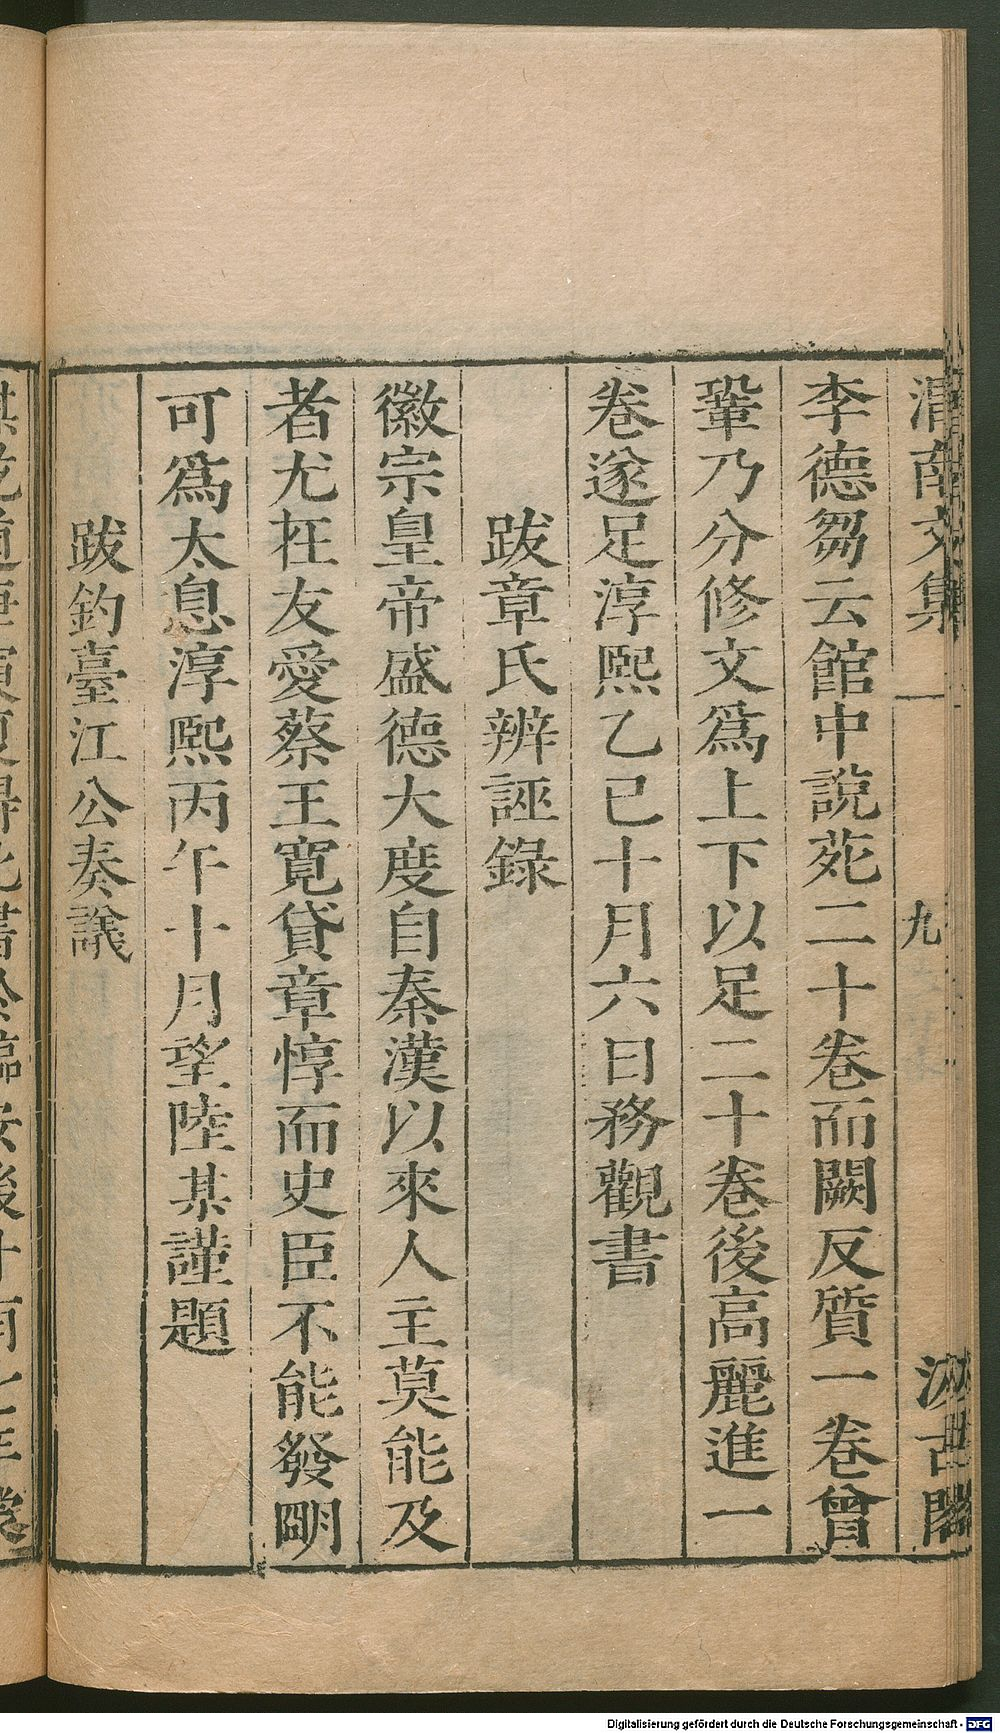 渭南文集
九
汲古閣
李德芻云館中說苑二十卷而闕反質一卷曾
鞏乃分修文爲上下以足二十卷後高麗進一
卷遂足淳熙乙巳十月六日務觀書
跋章氏辨誣錄
徽宗皇帝盛德大度自秦漢以來人主莫能及
者尤在友愛蔡王寛貸章惇而史臣不能發明
可爲太息淳熙丙午十月望陸某謹題
跋釣臺江公奏議
Digitalisierung gefördert durch die Deutsche Forschungsgemeinschaft - DFG